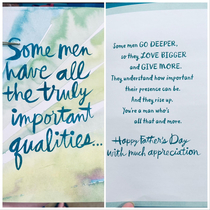 Some men
have all
the truly
important
qualities...
Some men GO DEEPER,
so they LOVE BIGGER
and GIVE MORE.
They understand how important
their presence can be.
And they rise up.
You're a man who's
all that and more.
Happy Father's Day
with much appreciation